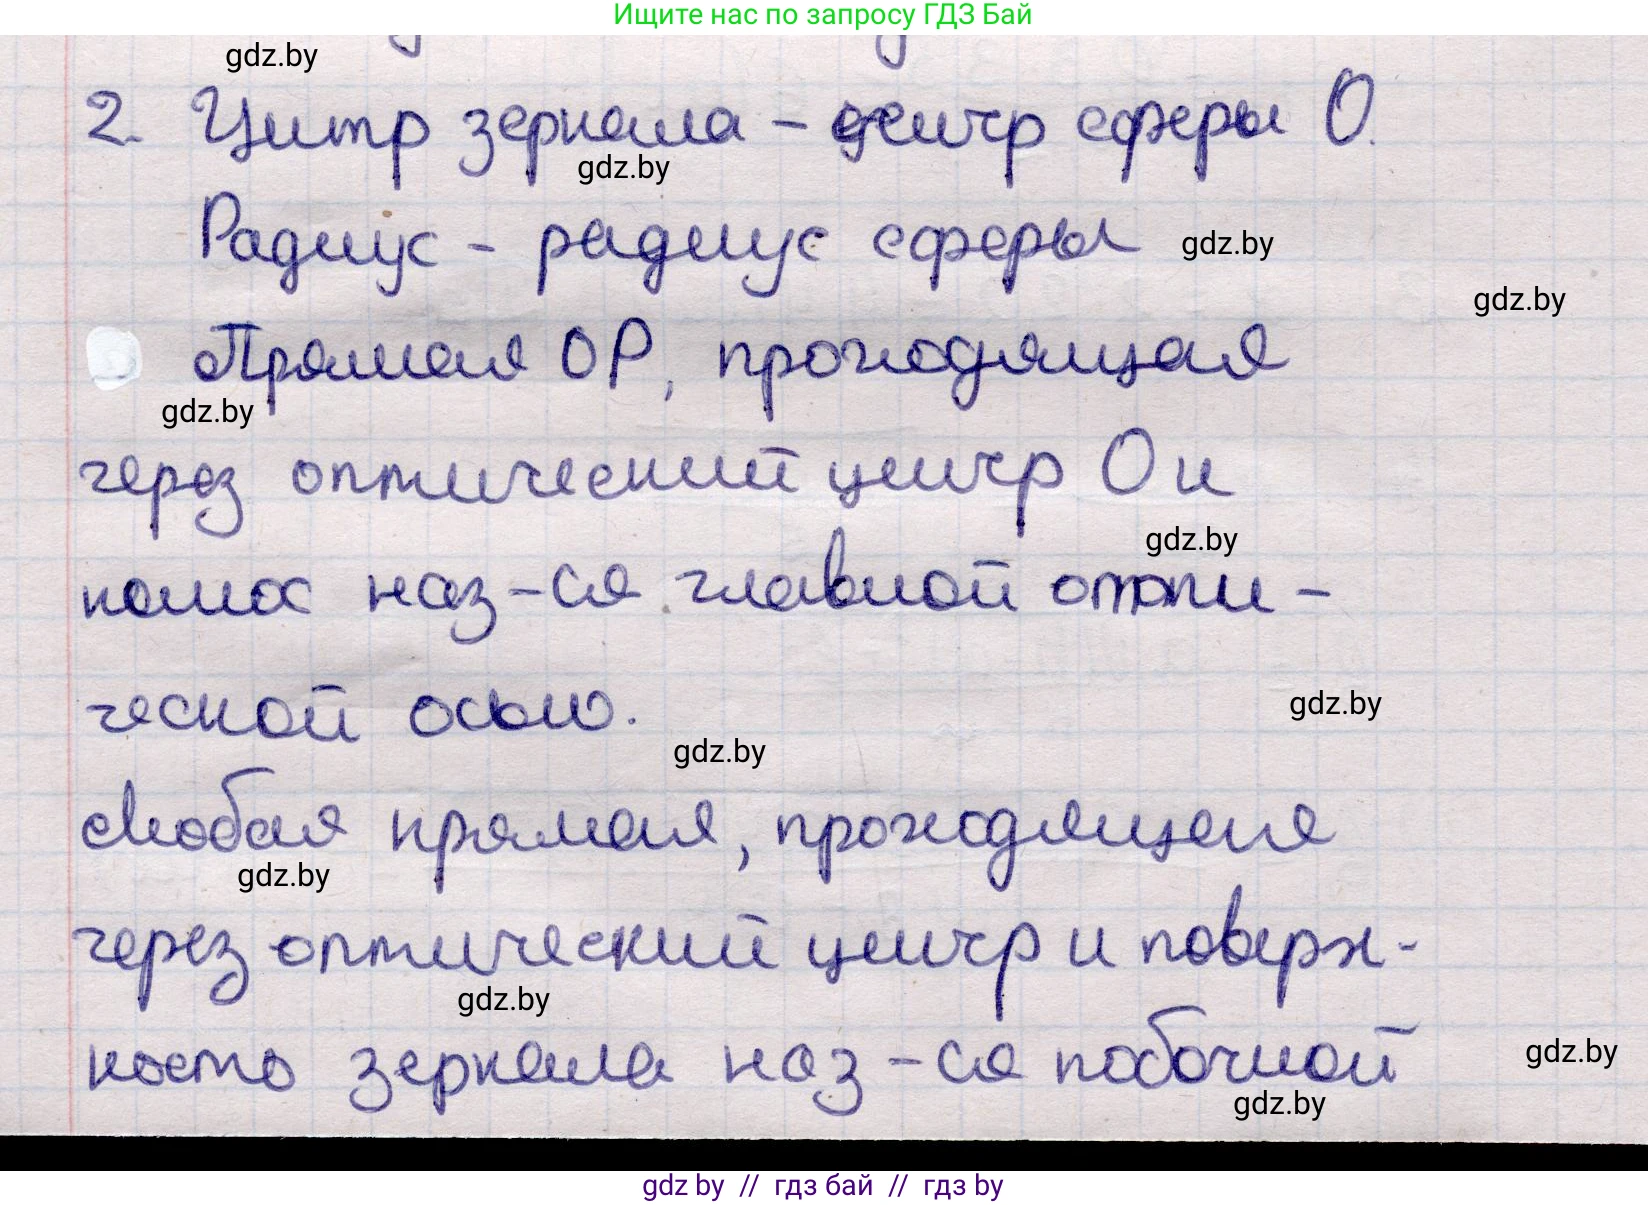 Ищите нас по запросу ГДЗ Бай
gdz.by
2. Центр зеркала – центр сферы О.
gdz.by
Радиус – радиус сферы
gdz.by
gdz.by
Прямая ОР, проходящая
gdz.by
через оптический центр О и
gdz.by
полюс наз-ся главной опти-
ческой осью.
gdz.by
gdz.by
Любая прямая, проходящая
gdz.by
через оптический центр и поверх-
gdz.by
ность зеркала наз-ся побочной
gdz.by
gdz.by
gdz by // гдз бай // гдз by